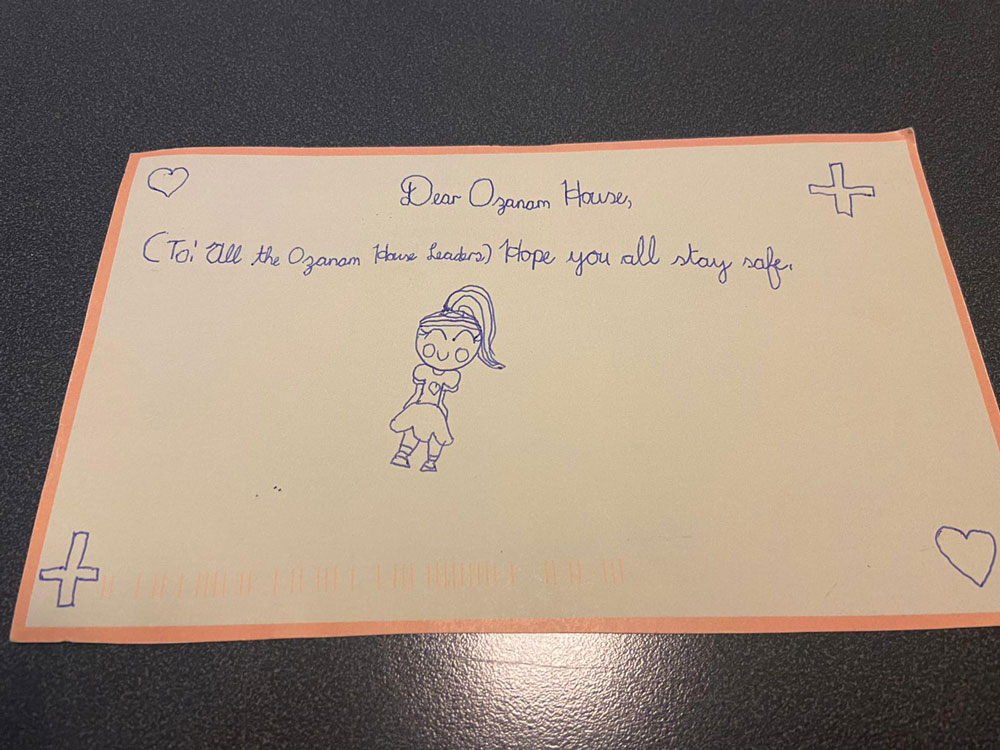 Dear Ozanam House,
(To: All the Ozanam House Leaders) Hope you all stay safe.